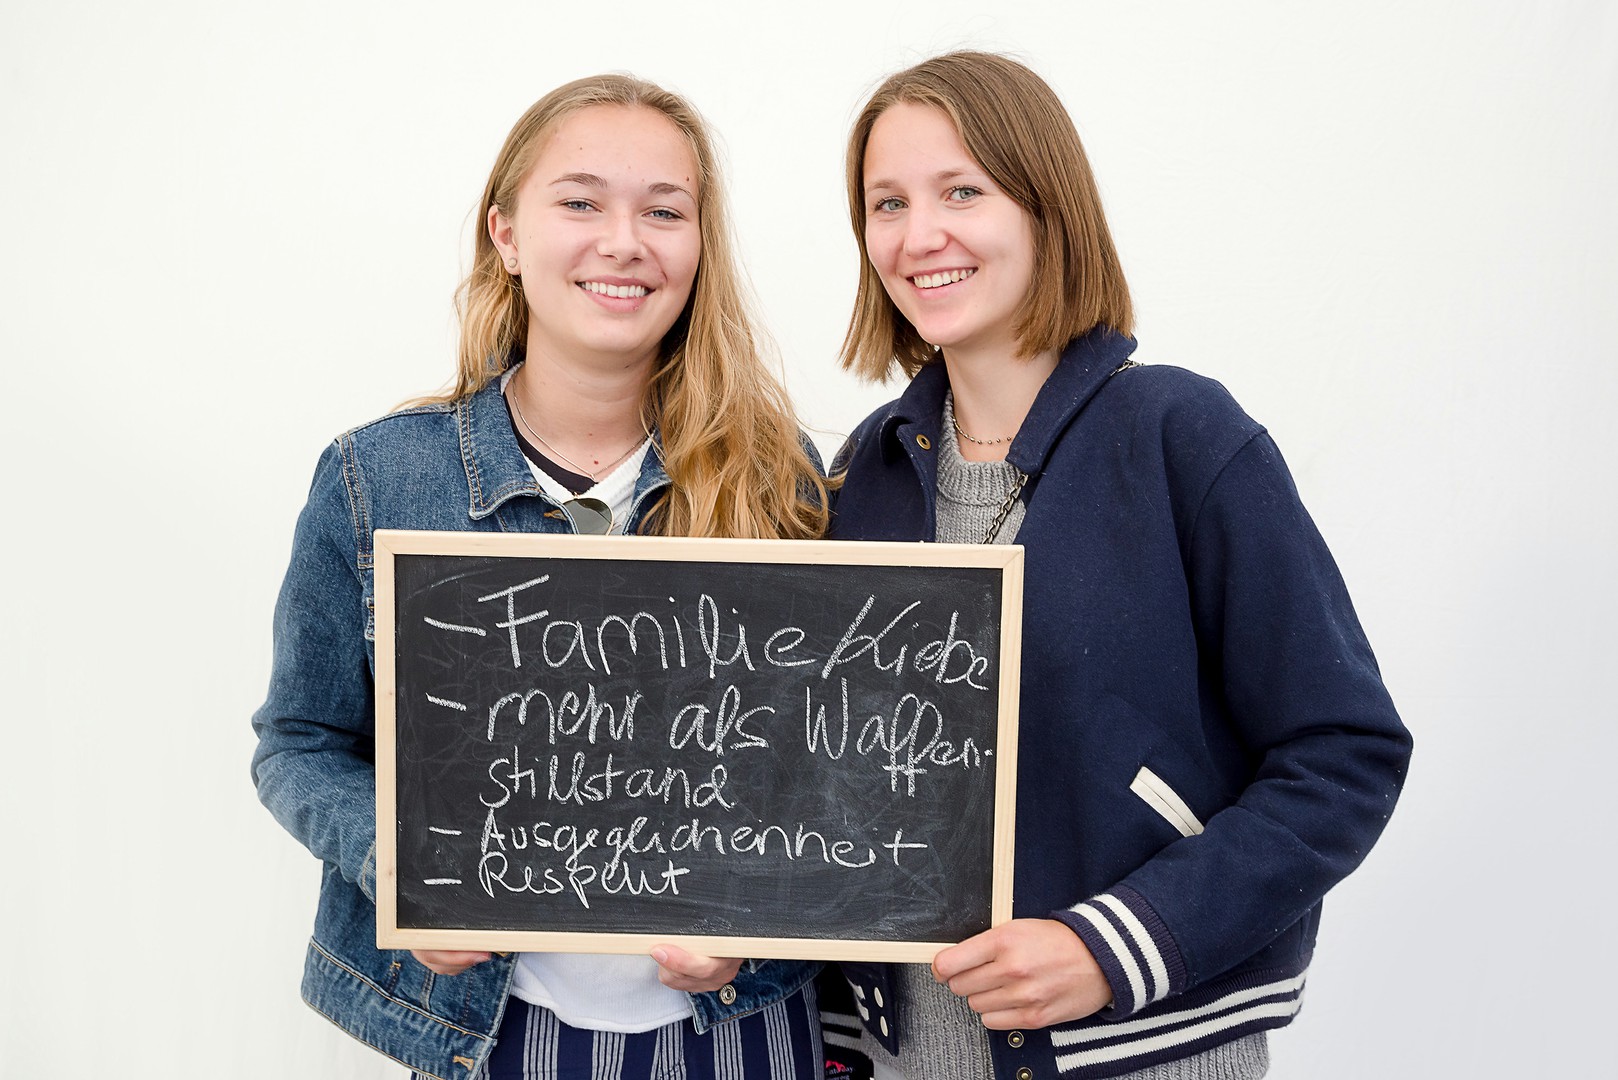 - Familie / Liebe
- mehr als Waffen-
stillstand
- Ausgeglichenheit
- Respekt